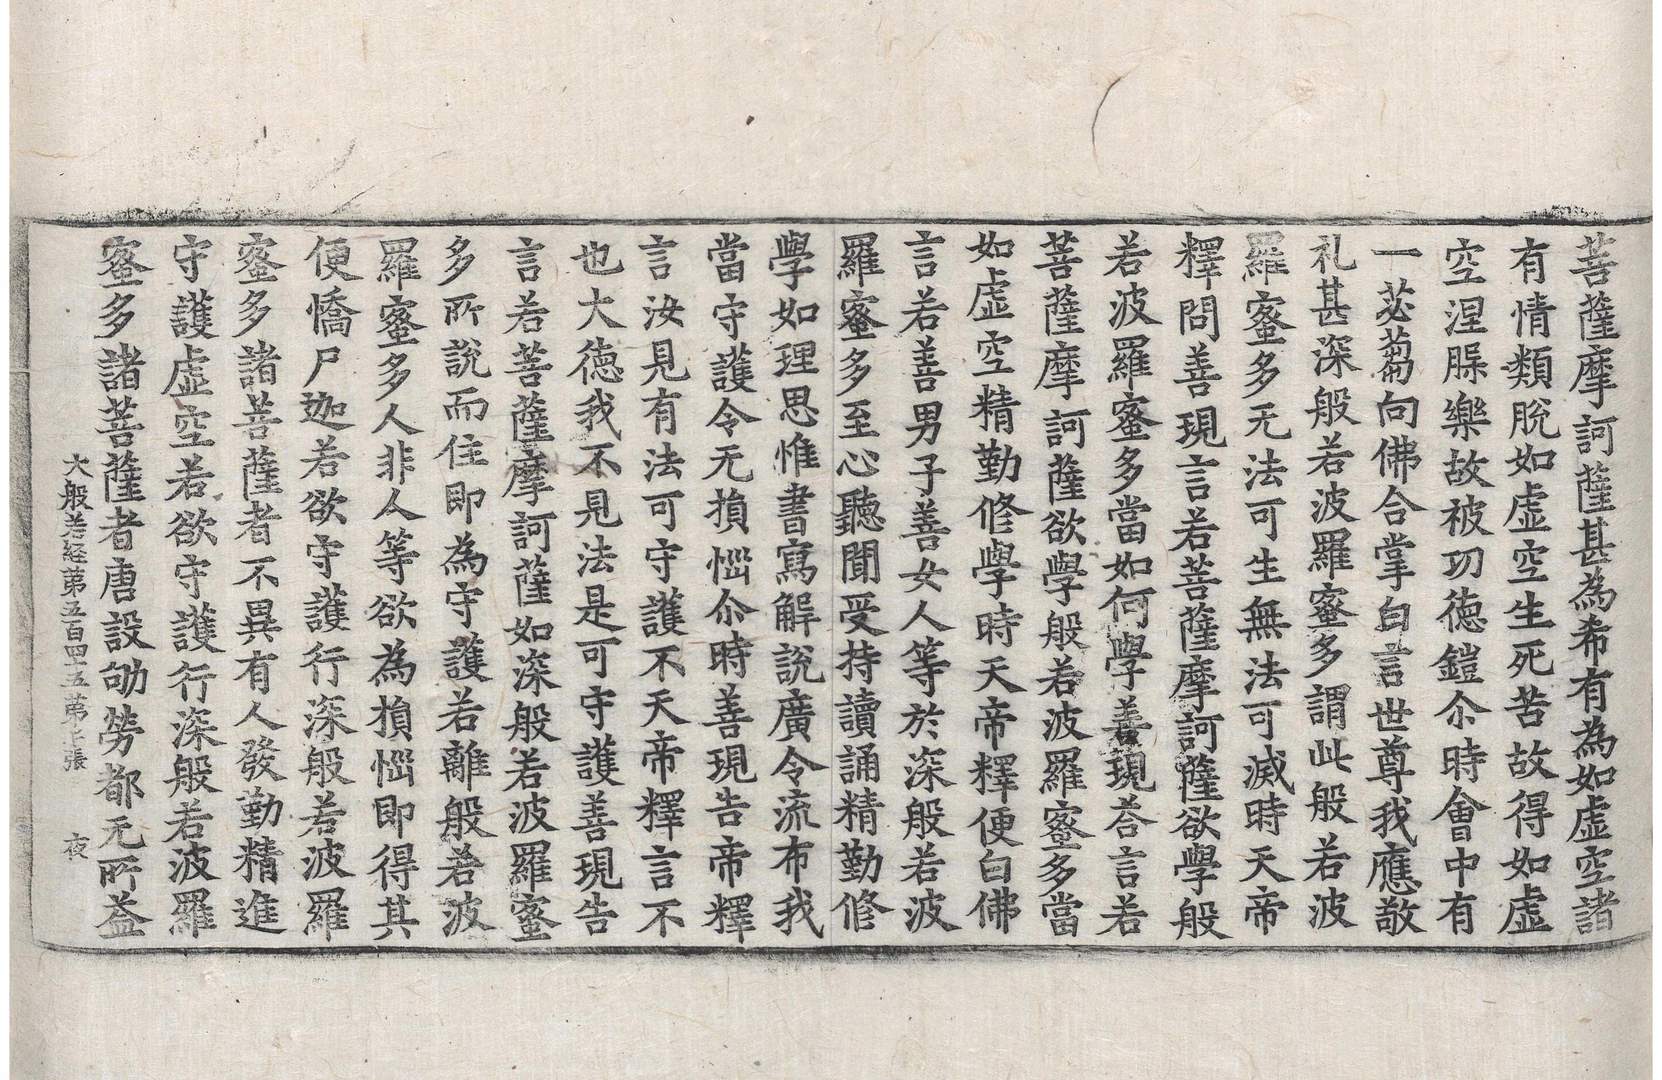 菩薩摩訶薩甚為希有為如虛空諸
有情類脫如虛空生死苦故得如虛
空涅脲樂故被㓛德鎧尒時會中有
一苾蒭向佛合掌白言世尊我應敬
礼甚深般若波羅蜜多謂此般若波
羅蜜多无法可生無法可滅時天帝
釋問善現言若菩薩摩訶薩欲學般
若波羅蜜多當如何學善現荅言若
菩薩摩訶薩欲學般若波羅蜜多當
如虛空精勤修學時天帝釋便白佛
言若善男子善女人等於深般若波
羅蜜多至心聽聞受持讀誦精勤修
學如理思惟書寫解說廣令流布我
當守護令无損惱尒時善現告帝釋
言汝見有法可守護不天帝釋言不
也大德我不見法是可守護善現告
言若菩薩摩訶薩如深般若波羅蜜
多所說而住即為守護若離般若波
羅蜜多人非人等欲為損惱即得其
便憍尸迦若欲守護行深般若波羅
蜜多諸菩薩者不異有人發勤精進
守護虛空若欲守護行深般若波羅
蜜多諸菩薩者唐設劬勞都无所益
大般若経第五百四十五第七張 夜